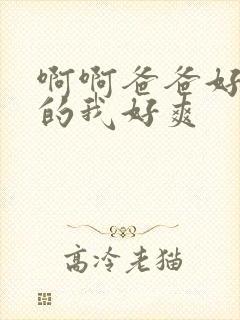 啊啊爸爸好
的我好爽
高冷老猫